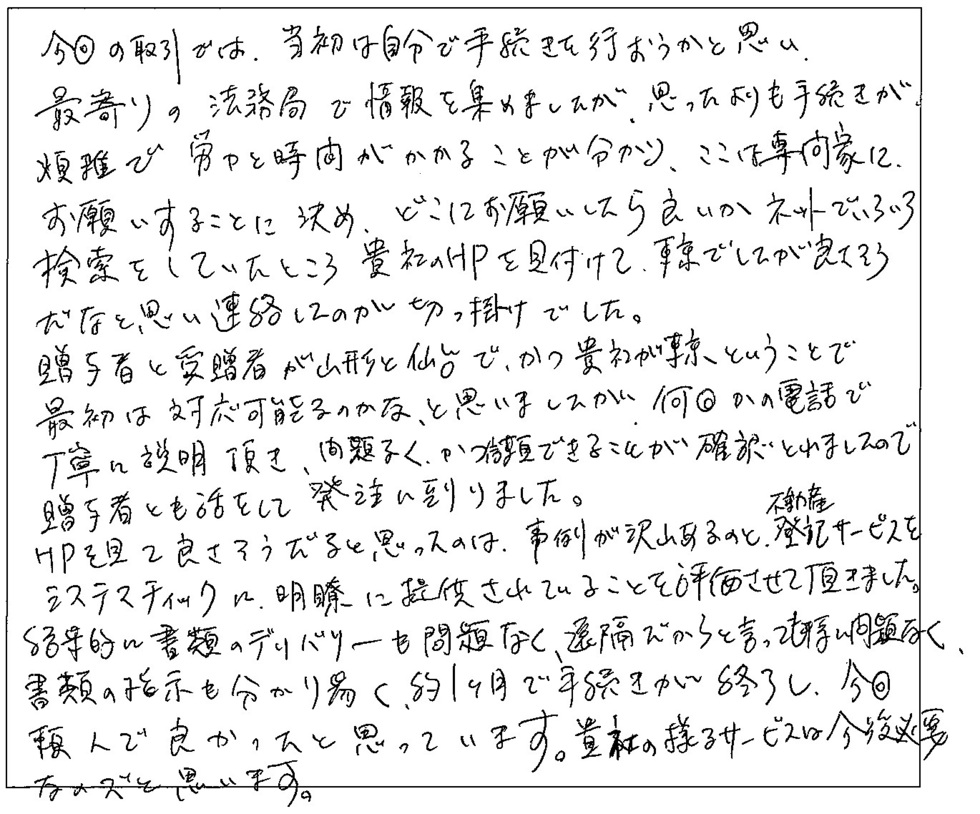 今回の取引では、当初は自分で手続きを行おうかと思い、
最寄りの法務局で情報を集めましたが、思ったよりも手続きが
煩雑で労力と時間がかかることが分かり、ここは専門家に
お願いすることに決め、どこにお願いしたら良いかネットでいろいろ
検索をしていたところ貴社のHPを見付けて、東京でしたが良さそう
だなと思い連絡したのが切っ掛けでした。
贈与者と受贈者が山形と仙台で、かつ貴社が東京、ということで
最初は対応可能なのかな、と思いましたが、何回かの電話で
丁寧に説明頂き、問題なく、かつ依頼できることが確認とれましたので
贈与者とも話をして発注に到りました。
HPを見て良さそうだなと思ったのは、事例が沢山あるのと、不動産登記サービスを
システスティックに、明瞭に提供されていることを評価させて頂きました。
結果的に書類のデリバリーも問題なく、遠隔だからと言っても特に問題なく、
書類の指示も分かり易く、約1ヶ月で手続きが終了し、今回
頼んで良かったと思っています。貴社の様なサービスは今後必要
なのだと思います。